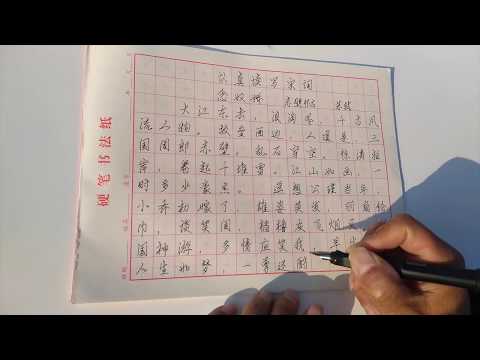 硬笔书法纸
认真读写宋词
念奴娇 赤壁怀古 苏轼
大江东去，浪淘尽，千古风
流人物。故垒西边，人道是，三
国周郎赤壁。乱石穿空，惊涛拍
岸，卷起千堆雪。江山如画，一
时多少豪杰。 遥想公瑾当年，
小乔初嫁了，雄姿英发，羽扇纶
巾，谈笑间，樯橹灰飞烟
国神游，多情应笑我，早
人生如梦，一尊还酹